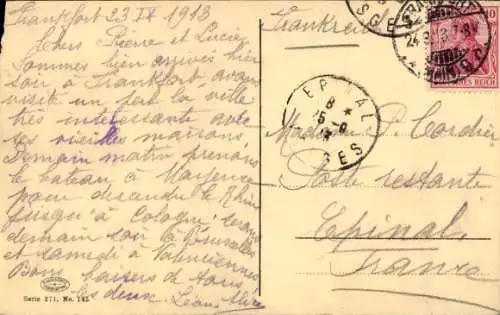 Frankfort 23 IX 1913
Chers Pierre et Lucie
Sommes bien arrivés hier
soir à Frankfort avons
visité un peu la ville
très intéressante avec
ses vieilles maisons.
Demain matin prenons
le bateau à Mayence
pour descendre le Rhin
jusqu'à Cologne; serons
demain soir à Bruxelles
et samedi à Valenciennes
Bons baisers de tous
les deux. Léon
Serie 271, No. 145
Frankreich
Madame P. Cordier
Poste restante
Epinal
France
EPINAL
10